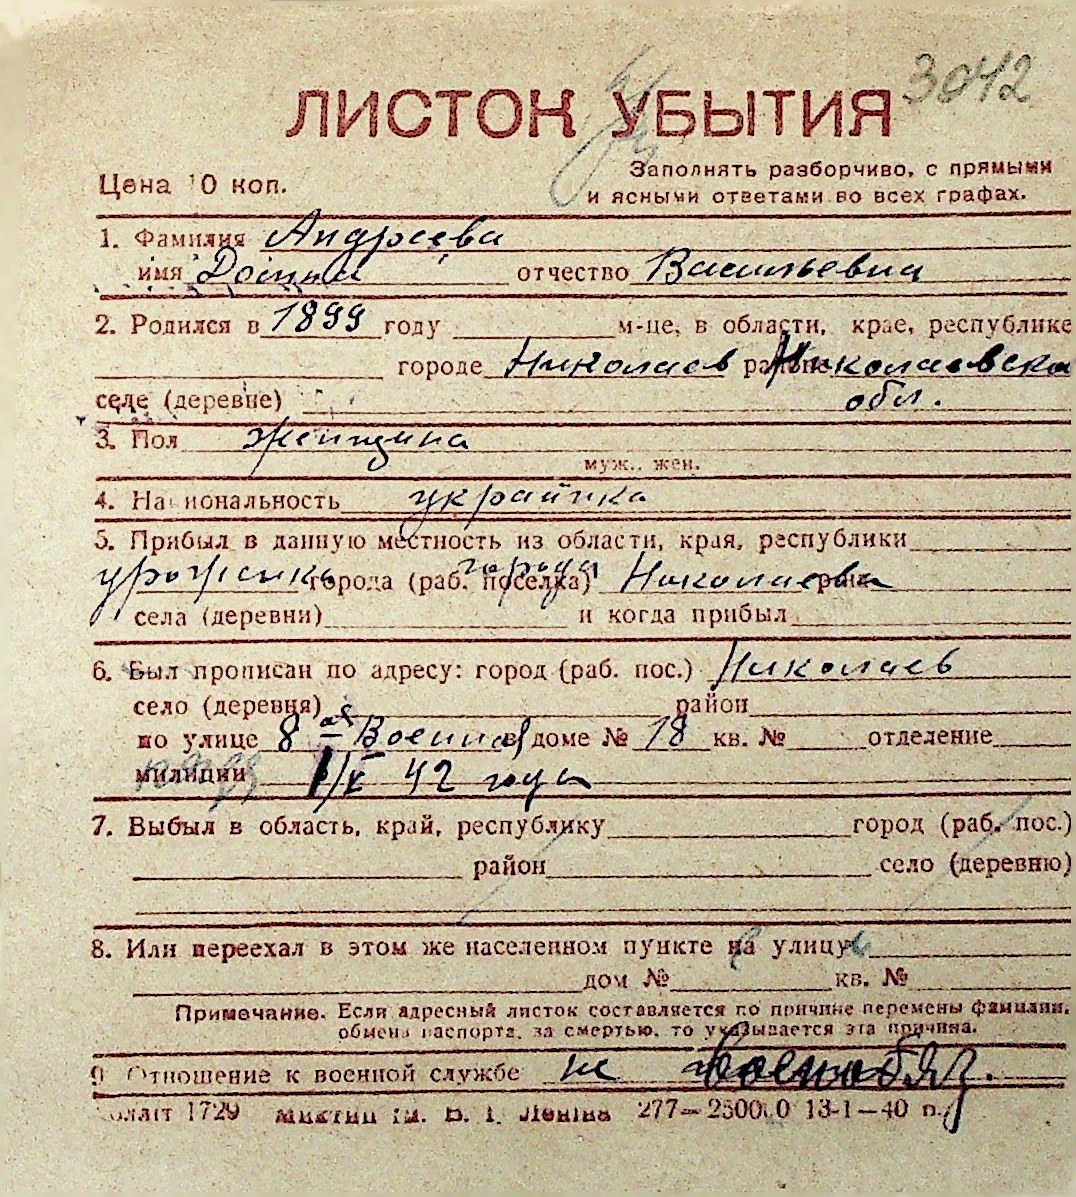 3042
ЛИСТОК УБЫТИЯ
Цена 10 коп.
Заполнять разборчиво, с прямыми
и ясными ответами во всех графах.
1. Фамилия Андреева
имя отчество Васильевна
2. Родился в 1899 году м-це, в области, крае, республике
городе Николаев районе Николаевска
селе (деревне) обл.
3. Пол женщина
муж., жен.
4. Национальность украинка
5. Прибыл в данную местность из области, края, республики
города (раб. поселка) города Николаева
села (деревни) и когда прибыл
6. Был прописан по адресу: город (раб. пос.) Николаев
село (деревня) район
по улице 8 ая Военная в доме № 18 кв. № отделение
милиции 42 года
7. Выбыл в область, край, республику город (раб. пос.)
район село (деревню)
8. Или переехал в этом же населенном пункте на улицу
дом № кв. №
Примечание. Если адресный листок составляется по причине перемены фамилии,
обмена паспорта, за смертью, то указывается эта причина.
9 Отношение к военной службе не военнообяз.
1729 Ленiна 277— 13-1—40 п.